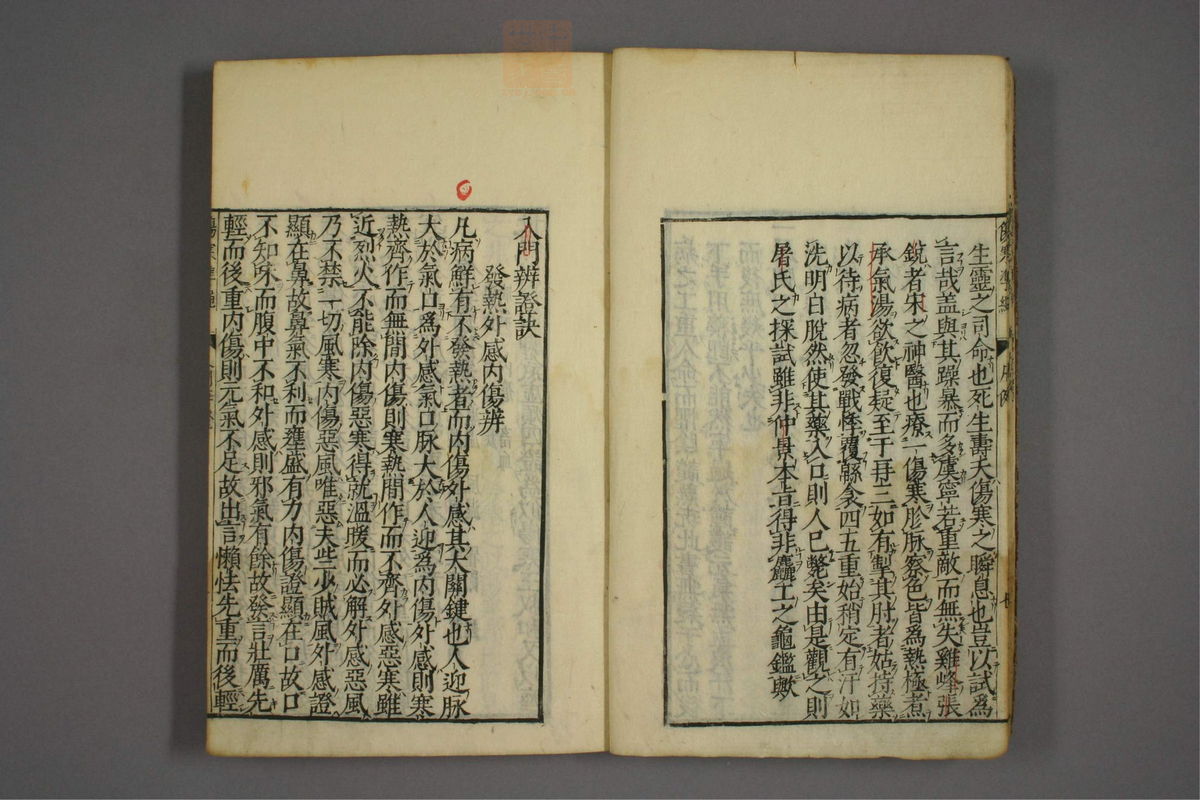 生靈之司命也死生壽夭傷寒之瞬息也豈以試爲
言哉盖與其躁暴而多虞寧若重敵而無失雞峰張
銳者宋之神醫也療一傷寒胗脉察色皆爲熱極煮
承氣湯欲飲復疑至于再三如有掣其肘者姑持藥
以待病者忽發戰慄覆緜衾四五重始稍定有汗如
洗明白脫然使其藥入口則人已斃矣由是觀之則
屠氏之探試雖非仲景本旨得非麤工之龜鑑歟
入門辨證訣
發熱外感內傷辨
凡病鮮有不發熱者而內傷外感其大關鍵也人迎脉
大於氣口爲外感氣口脉大於人迎爲內傷外感則寒
熱齊作而無間內傷則寒熱間作而不齊外感惡寒雖
近烈火不能除內傷惡寒得就溫暖而必解外感惡風
乃不禁一切風寒內傷惡風唯惡夫些少賊風外感證
顯在鼻故鼻氣不利而壅盛有力內傷證顯在口故口
不知味而腹中不和外感則邪氣有餘故發言壯厲先
輕而後重內傷則元氣不足故出言懶怯先重而後輕